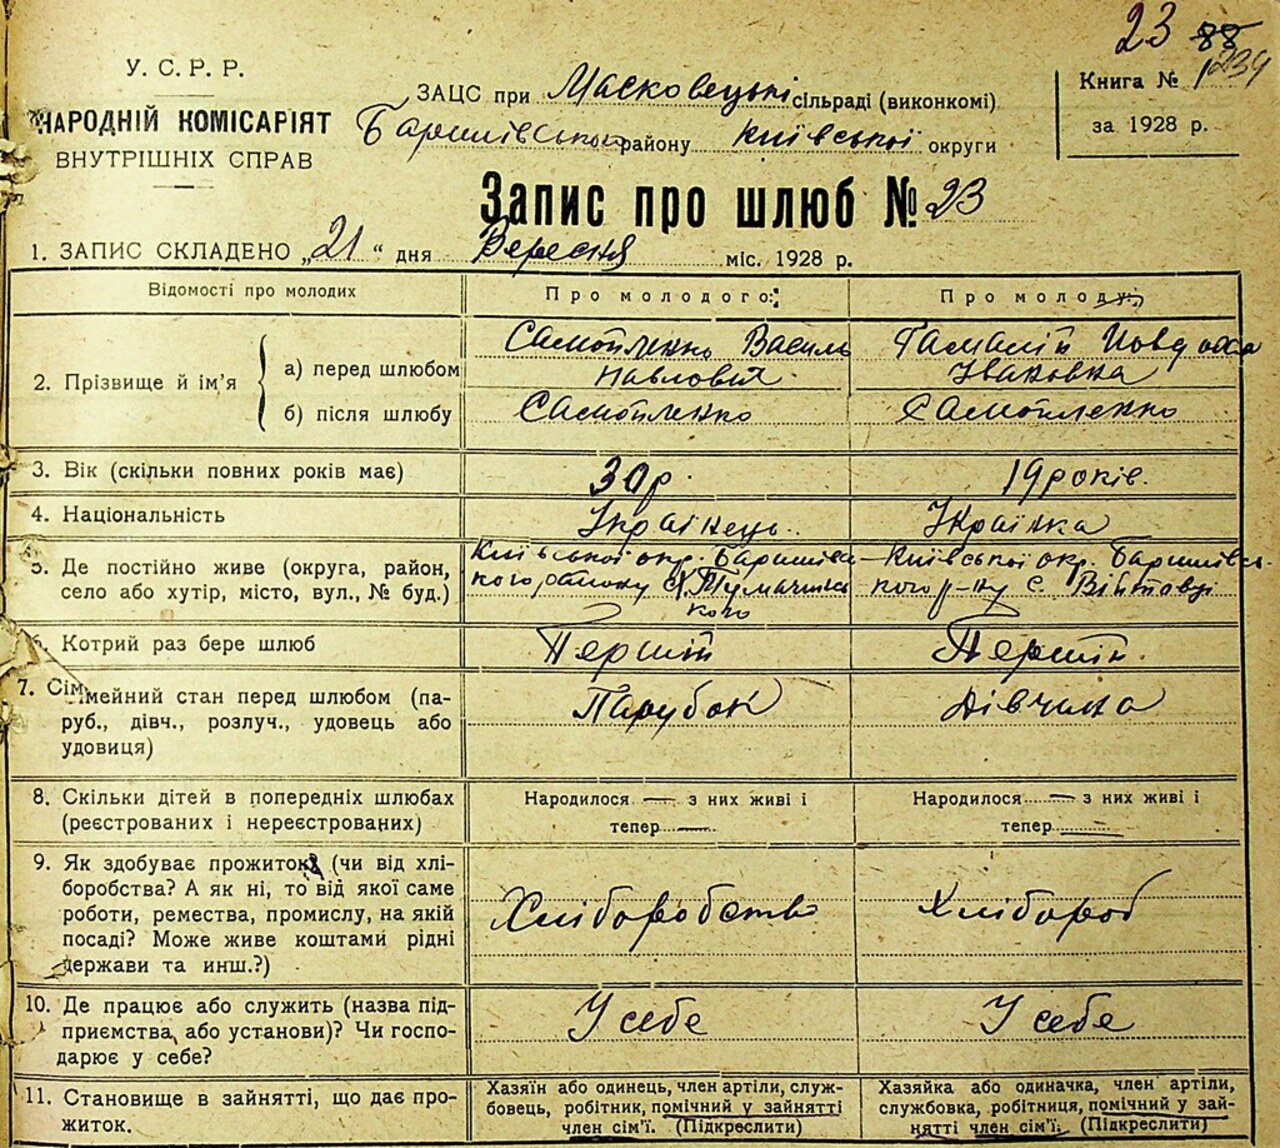 23 88
239
У. С. Р. Р.
НАРОДНІЙ КОМІСАРІЯТ
ВНУТРІШНІХ СПРАВ
ЗАЦС при Масковецькі сільраді (виконкомі)
Баришівського району Київської округи
Книга № 1
за 1928 р.
Запис про шлюб № 23
1. ЗАПИС СКЛАДЕНО „21“ дня Вересня міс. 1928 р.
Відомості про молодих
Про молодого:
Про молоду:
2. Прізвище й ім’я
а) перед шлюбом
Самойленко Василь
Павлович
Гамалій Йовдоха
Іваковна
б) після шлюбу
Самойленко
Самойленко
3. Вік (скільки повних років має)
30 р.
19 років.
4. Національність
Українець.
Українка
5. Де постійно живе (округа, район,
село або хутір, місто, вул., № буд.)
Київської окр. Баришівс
кого району х. Тумачинсь
кого
Київської окр. Баришівсь-
кого р-ну с. Війтовці
6. Котрий раз бере шлюб
Перший
Перший.
7. Сімейний стан перед шлюбом (па-
руб., дівч., розлуч., удовець або
удовиця)
Парубок
Дівчина
8. Скільки дітей в попередніх шлюбах
(реєстрованих і нереєстрованих)
Народилося — з них живі і
тепер —
Народилося — з них живі і
тепер —
9. Як здобуває прожиток (чи від хлі-
боробства? А як ні, то від якої саме
роботи, ремества, промислу, на якій
посаді? Може живе коштами рідні
держави та инш.?)
Хліборобство
Хлібороб
10. Де працює або служить (назва під-
приємства, або установи)? Чи госпо-
дарює у себе?
У себе
У себе
11. Становище в зайнятті, що дає про-
житок.
Хазяїн або одинець, член артіли, служ-
бовець, робітник, помічний у зайнятті
член сім’ї. (Підкреслити)
Хазяйка або одиначка, член артіли,
службовка, робітниця, помічний у зай-
нятті член сім’ї. (Підкреслити)